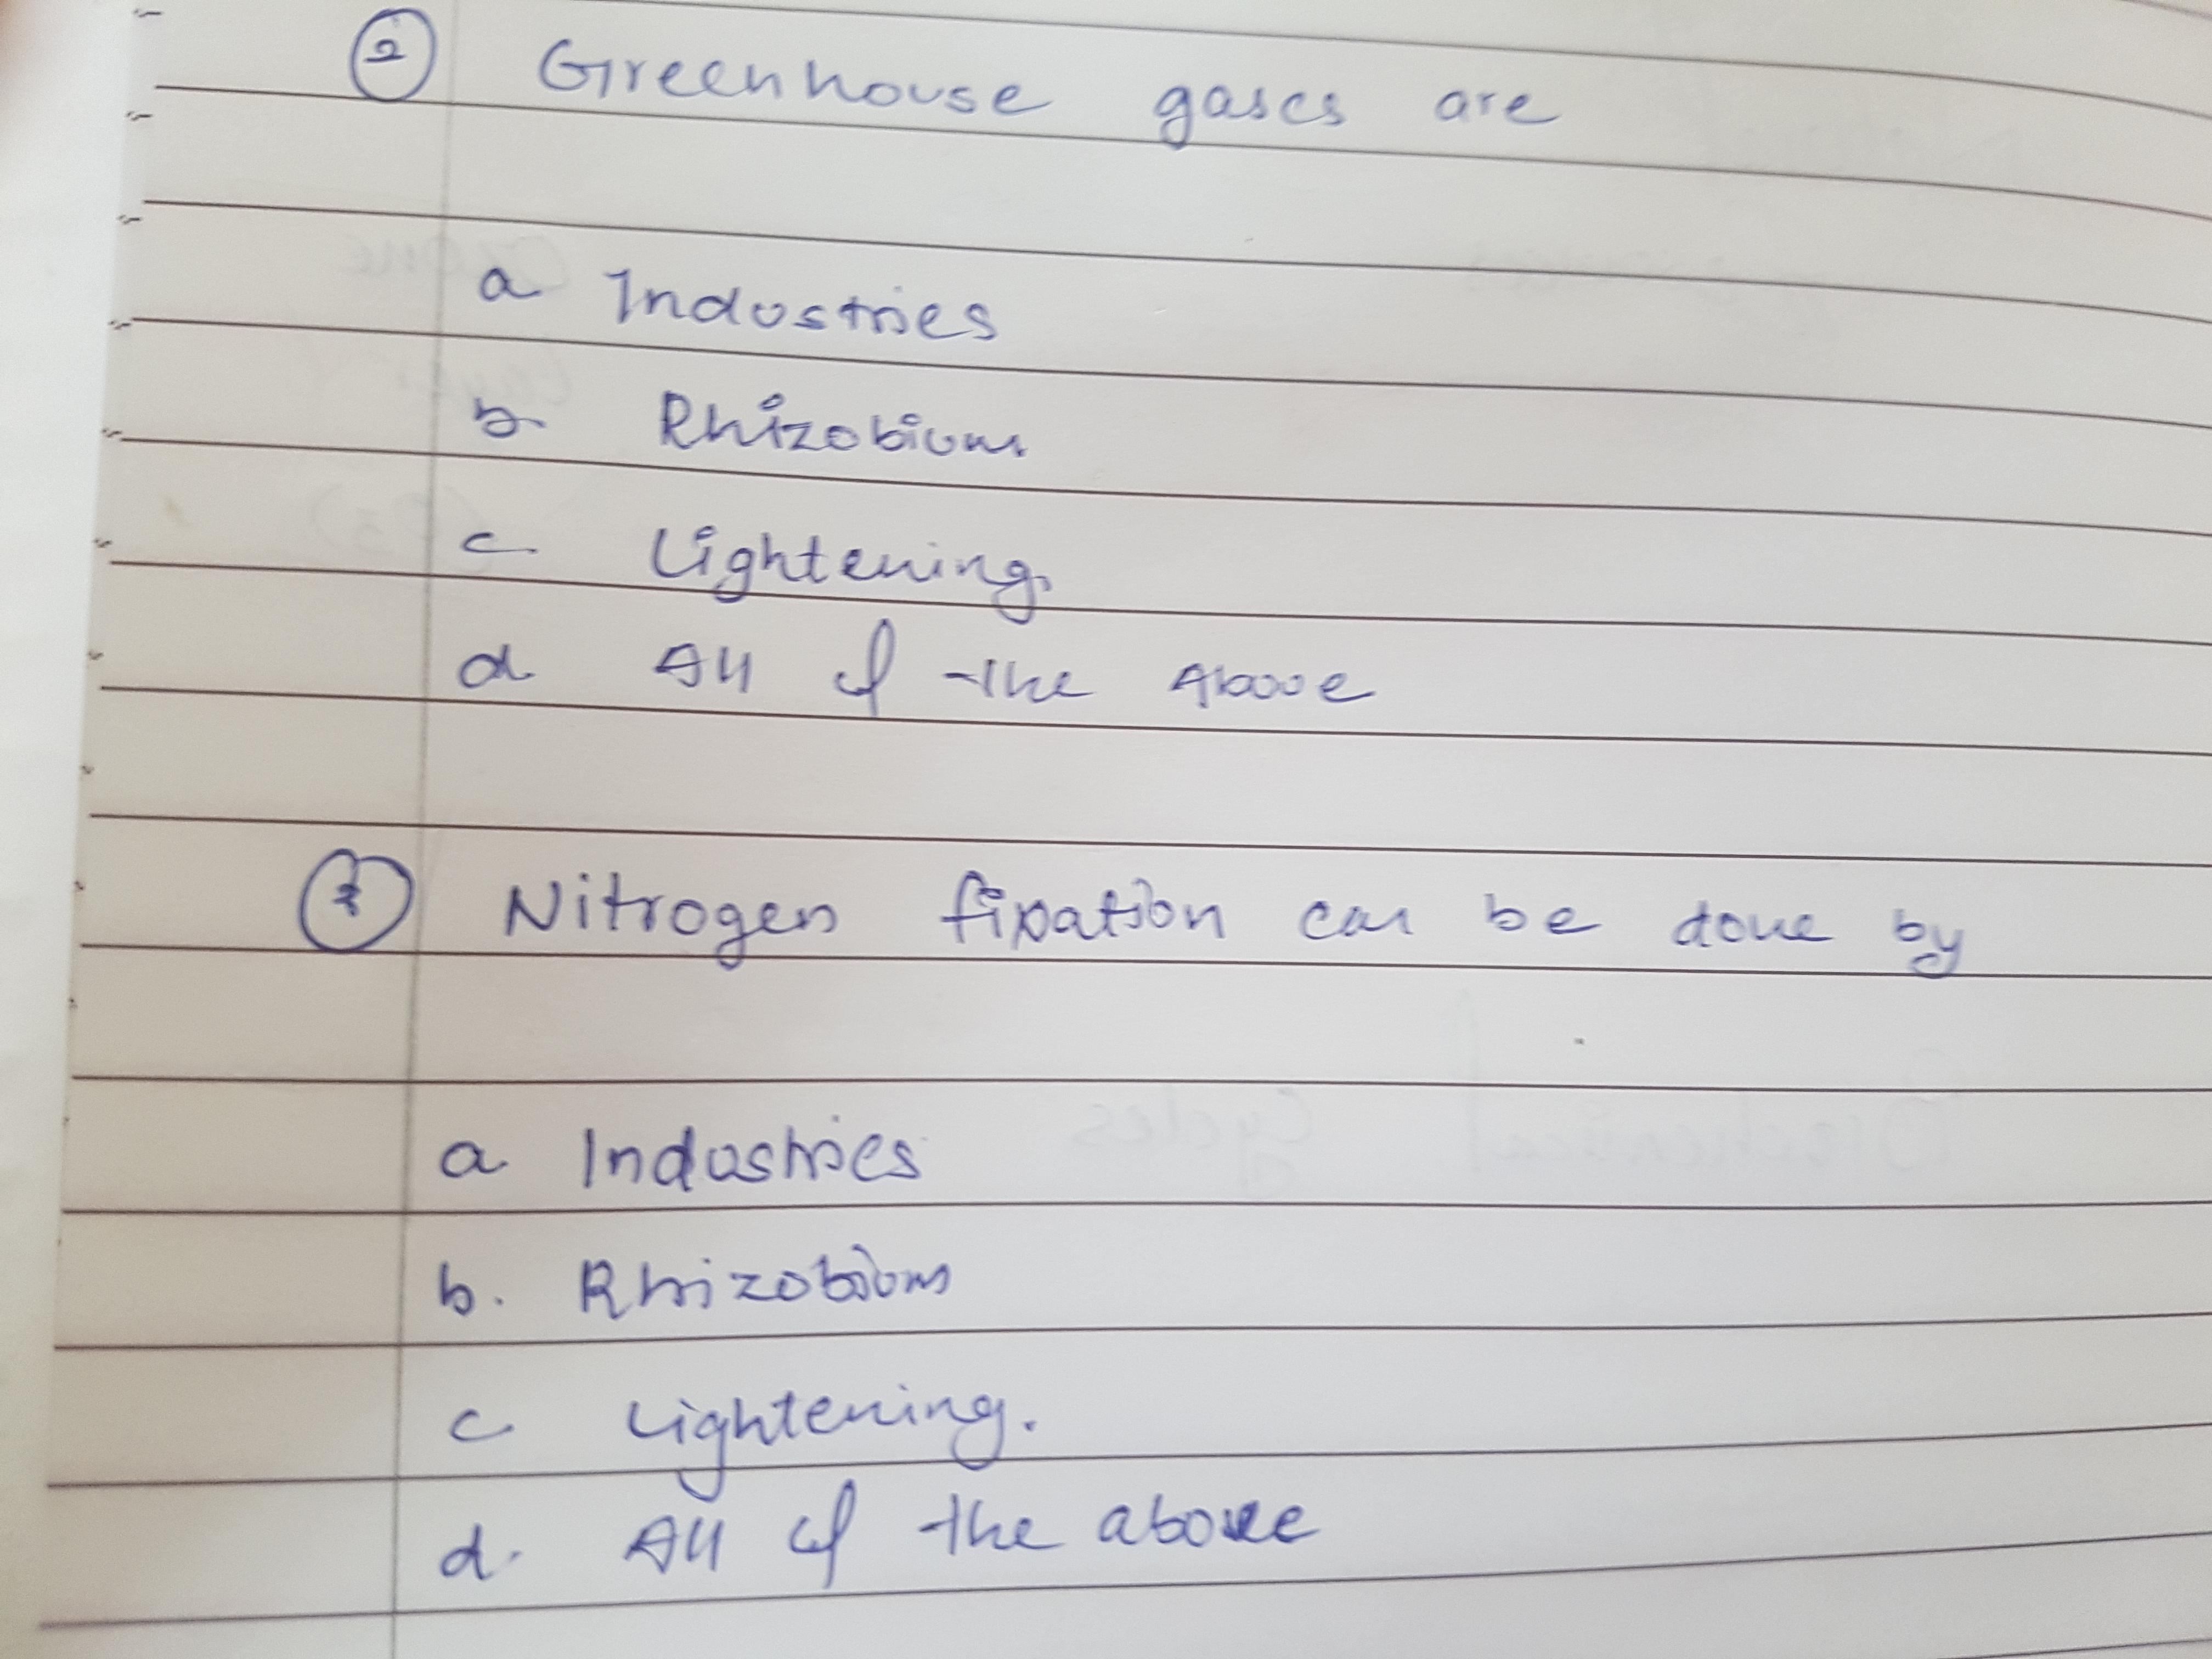 2 Greenhouse gases are
a Industries
b. Rhizobium
c. Lightening.
d All of the Above
3 Nitrogen fixation can be done by
a. Industries
b. Rhizobium
c Lightening.
d. All of the above